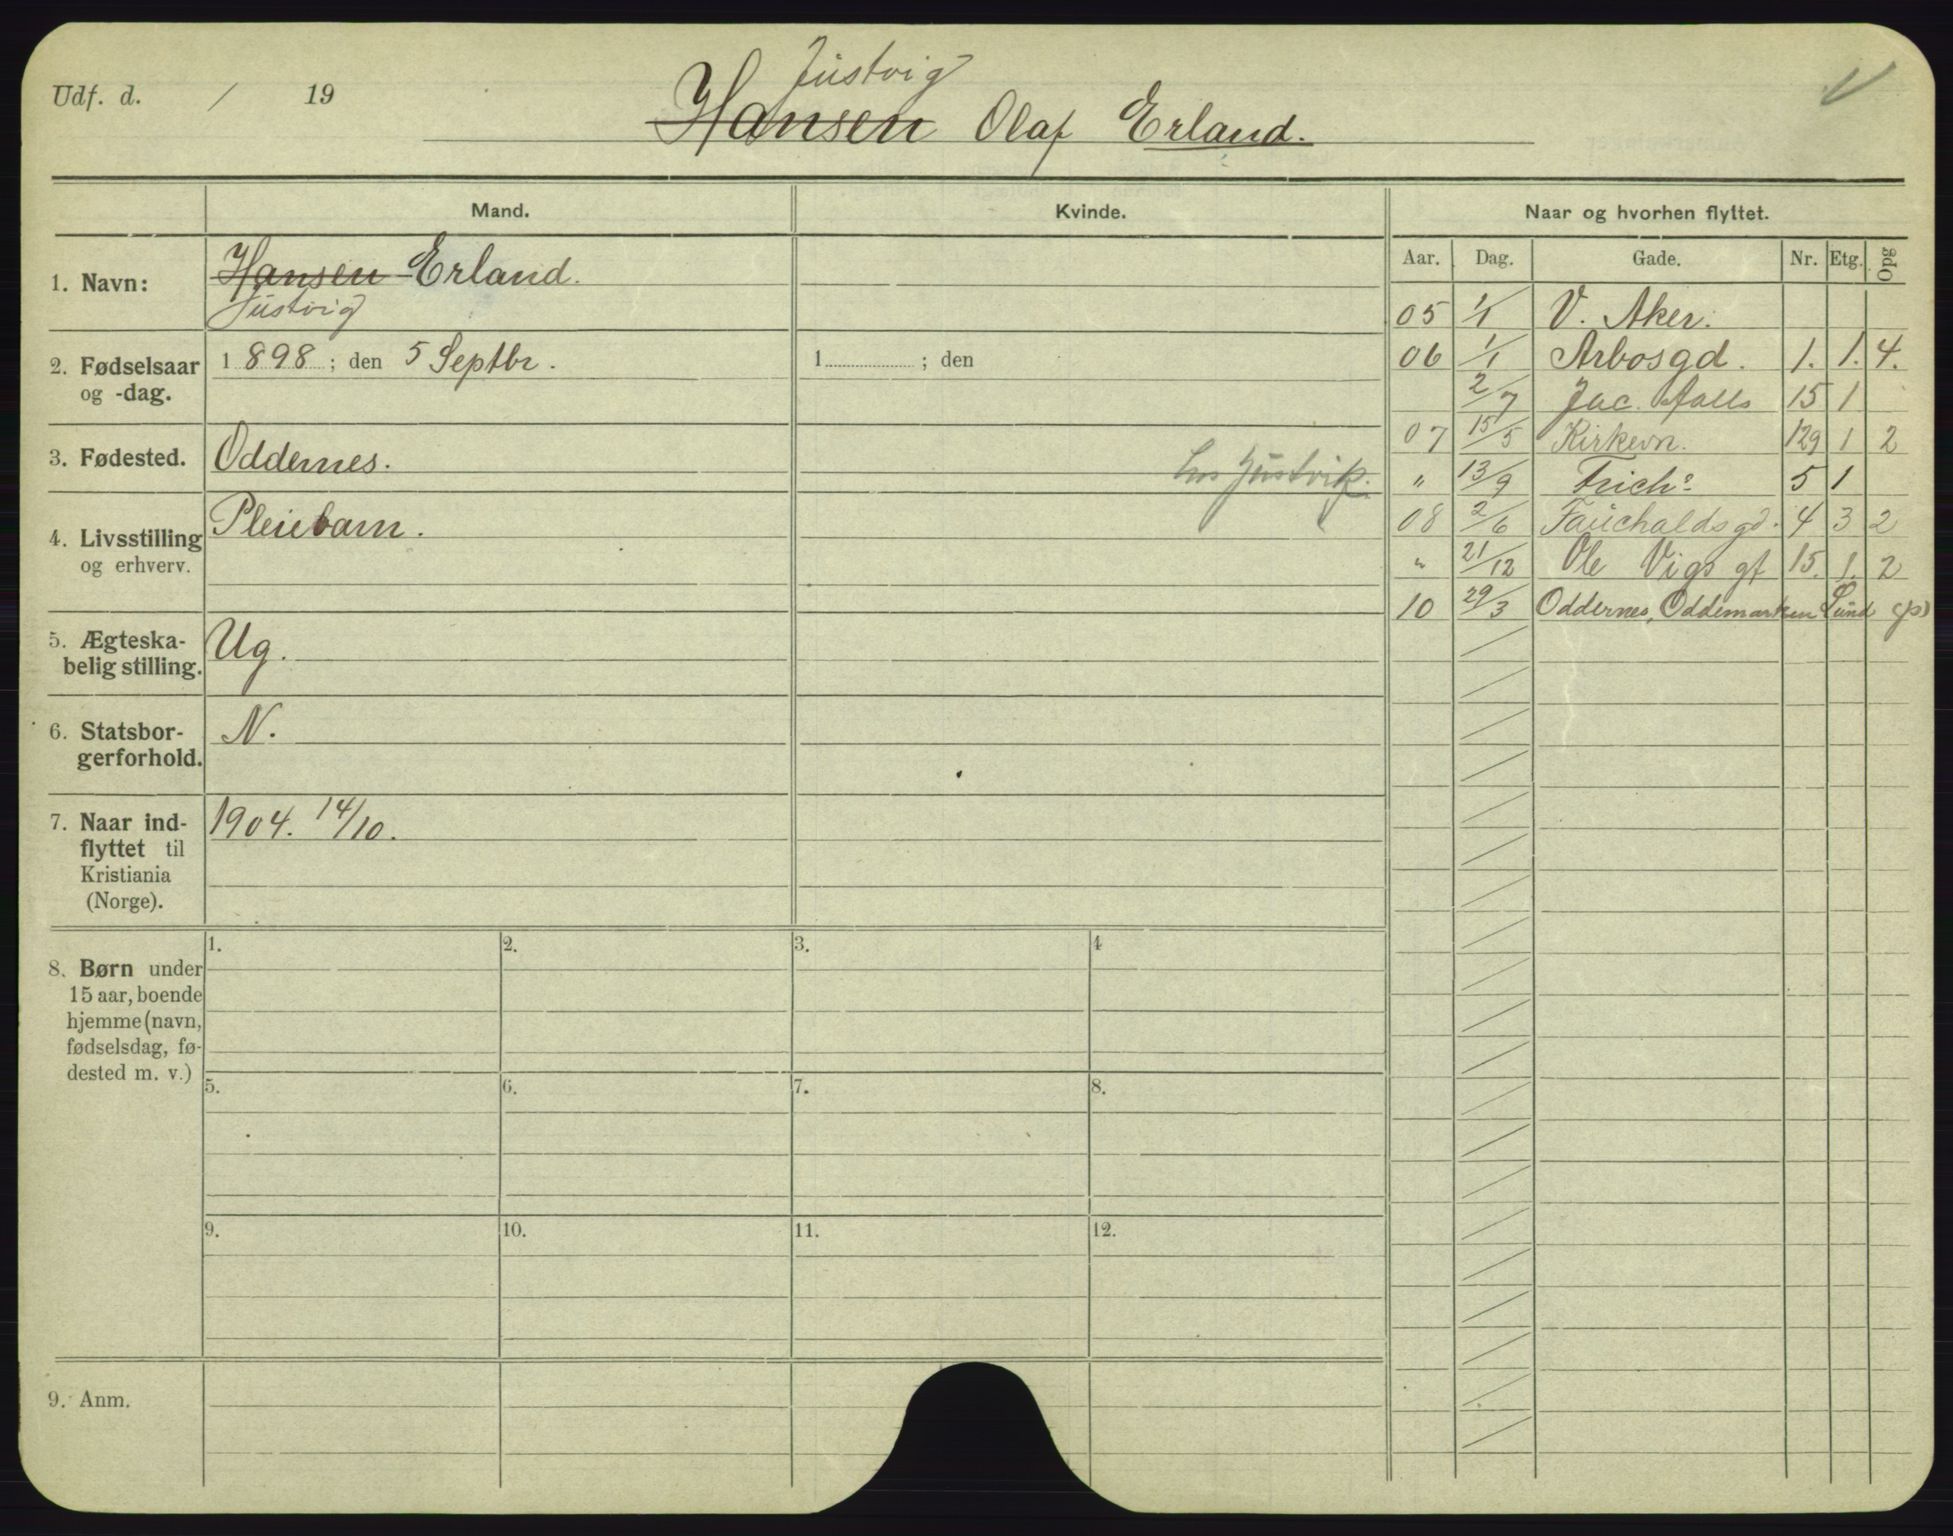 Justvig
Udf. d. / 19
Hansen Olaf Erland.
Mand.
Kvinde.
Naar og hvorhen flyttet.
Aar. Dag. Gade. Nr. Etg. Opg
1. Navn:
Hansen Erland.
Justvig
2. Fødselsaar
og -dag.
1898; den 5 Septbr.
1 ; den
3. Fødested.
Oddernes.
hos Justvik.
4. Livsstilling
og erhverv.
Pleiebarn.
5. Ægteska-
belig stilling.
Ug.
6. Statsbor-
gerforhold.
N.
7. Naar ind-
flyttet til
Kristiania
(Norge).
1904. 14/10.
05 1/1 V. Aker.
06 1/1 Arbosgd. 1. 1. 4.
2/7 Jac. Aalls 15 1
07 15/5 Kirkevn. 129 1 2
" 13/9 Frichs 5 1
08 2/6 Fauchaldsgd. 4 3 2
" 21/12 Ole Vigs gt 15. 1. 2
10 29/3 Oddernes, Oddemarken Lund (p)
8. Børn under
15 aar, boende
hjemme (navn,
fødselsdag, fø-
dested m. v.)
1. 2. 3. 4
5. 6. 7. 8.
9. 10. 11. 12.
9. Anm.